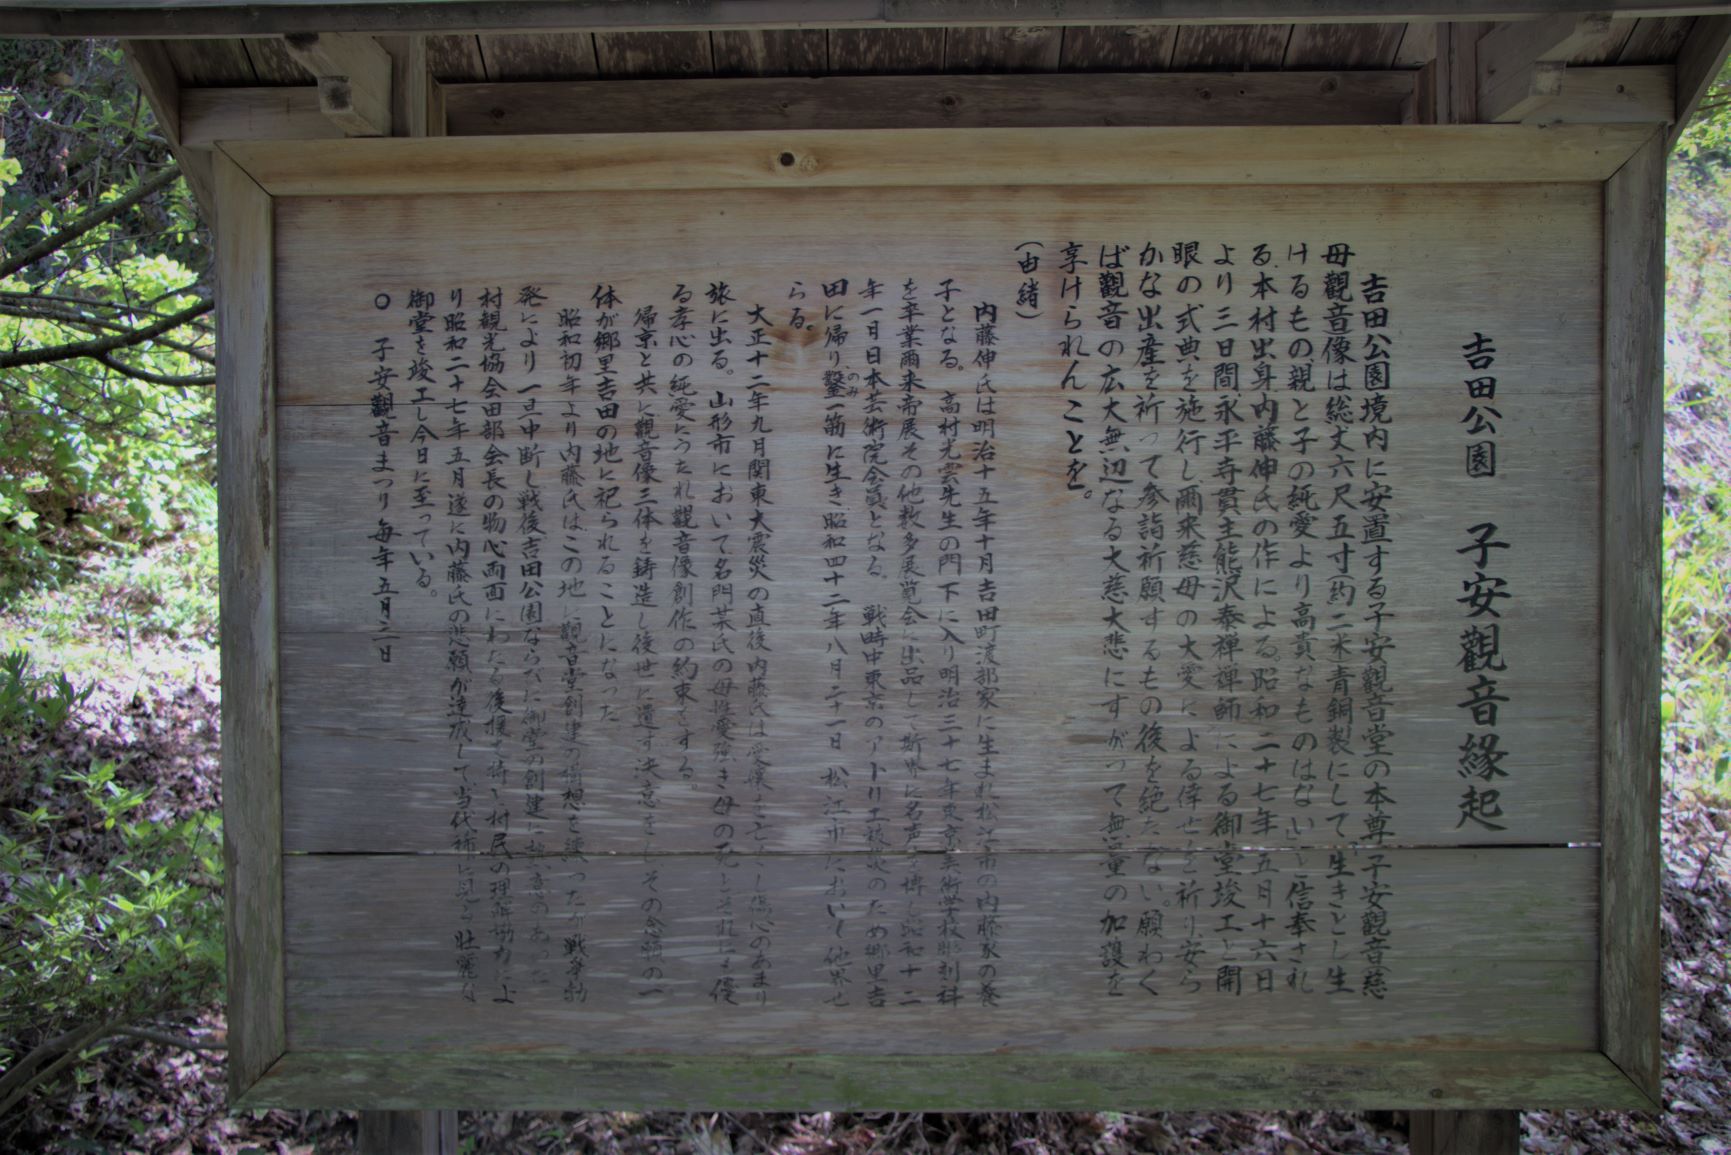 吉田公園　子安觀音緣起
吉田公園境内に安置する子安觀音堂の本尊子安觀音(慈
母觀音像は総丈六尺五寸(約二米)青銅製にして「生きとし生
けるもの、親と子の純愛より高貴なものはない」と信奉され
る、本村出身内藤伸氏の作による。昭和二十七年五月十六日
より三日間、永平寺貫主熊沢泰禅禅師による御堂竣工と開
眼の式典を施行し、爾来慈母の大愛による倖せを祈り、安ら
かな出産を祈って参詣祈願するもの後を絶たない。願わく
ば觀音の広大無辺なる大慈大悲にすがって無量の加護を
享けられんことを。
(由緒)
内藤伸氏は明治十五年十月吉田町渡部家に生まれ松江市の内藤家の養
子となる。高村光雲先生の門下に入り明治三十七年東京美術学校彫刻科
を卒業爾来帝展その他数多展覧会に出品して斯界に名声を博し昭和十二
年一日日本芸術院会員となる。戦時中東京のアトリエ被災のため郷里吉
田に帰り、鑿一筋に生き昭和四十二年八月二十一日松江市において他界せ
のみ
らる。
大正十二年九月関東大震災の直後内藤氏は愛嬢を し傷心のあまり
旅に出る。山形市において名門某氏の母性愛強き母の死とそれにも優
る孝心の純愛にうたれ觀音像創作の約束をする。
帰京と共に觀音像三体を鋳造し後世に遺す決意をしその念願の一
体が郷里吉田の地に祀られることになった
昭和初年より内藤氏はこの地に觀音堂創建の構想を練ったが戦争勃
発により一旦中断し戦後吉田公園ならびに御堂の創建に熱意のあった
村観光協会田部会長の物心両面にわたる後援を得 村民の理解協力によ
り昭和二十七年五月遂に内藤氏の悲願が達成して、当代稀に見る壮麗な
御堂を竣工し今日に至っている。
○　子安觀音まつり　毎年五月三日